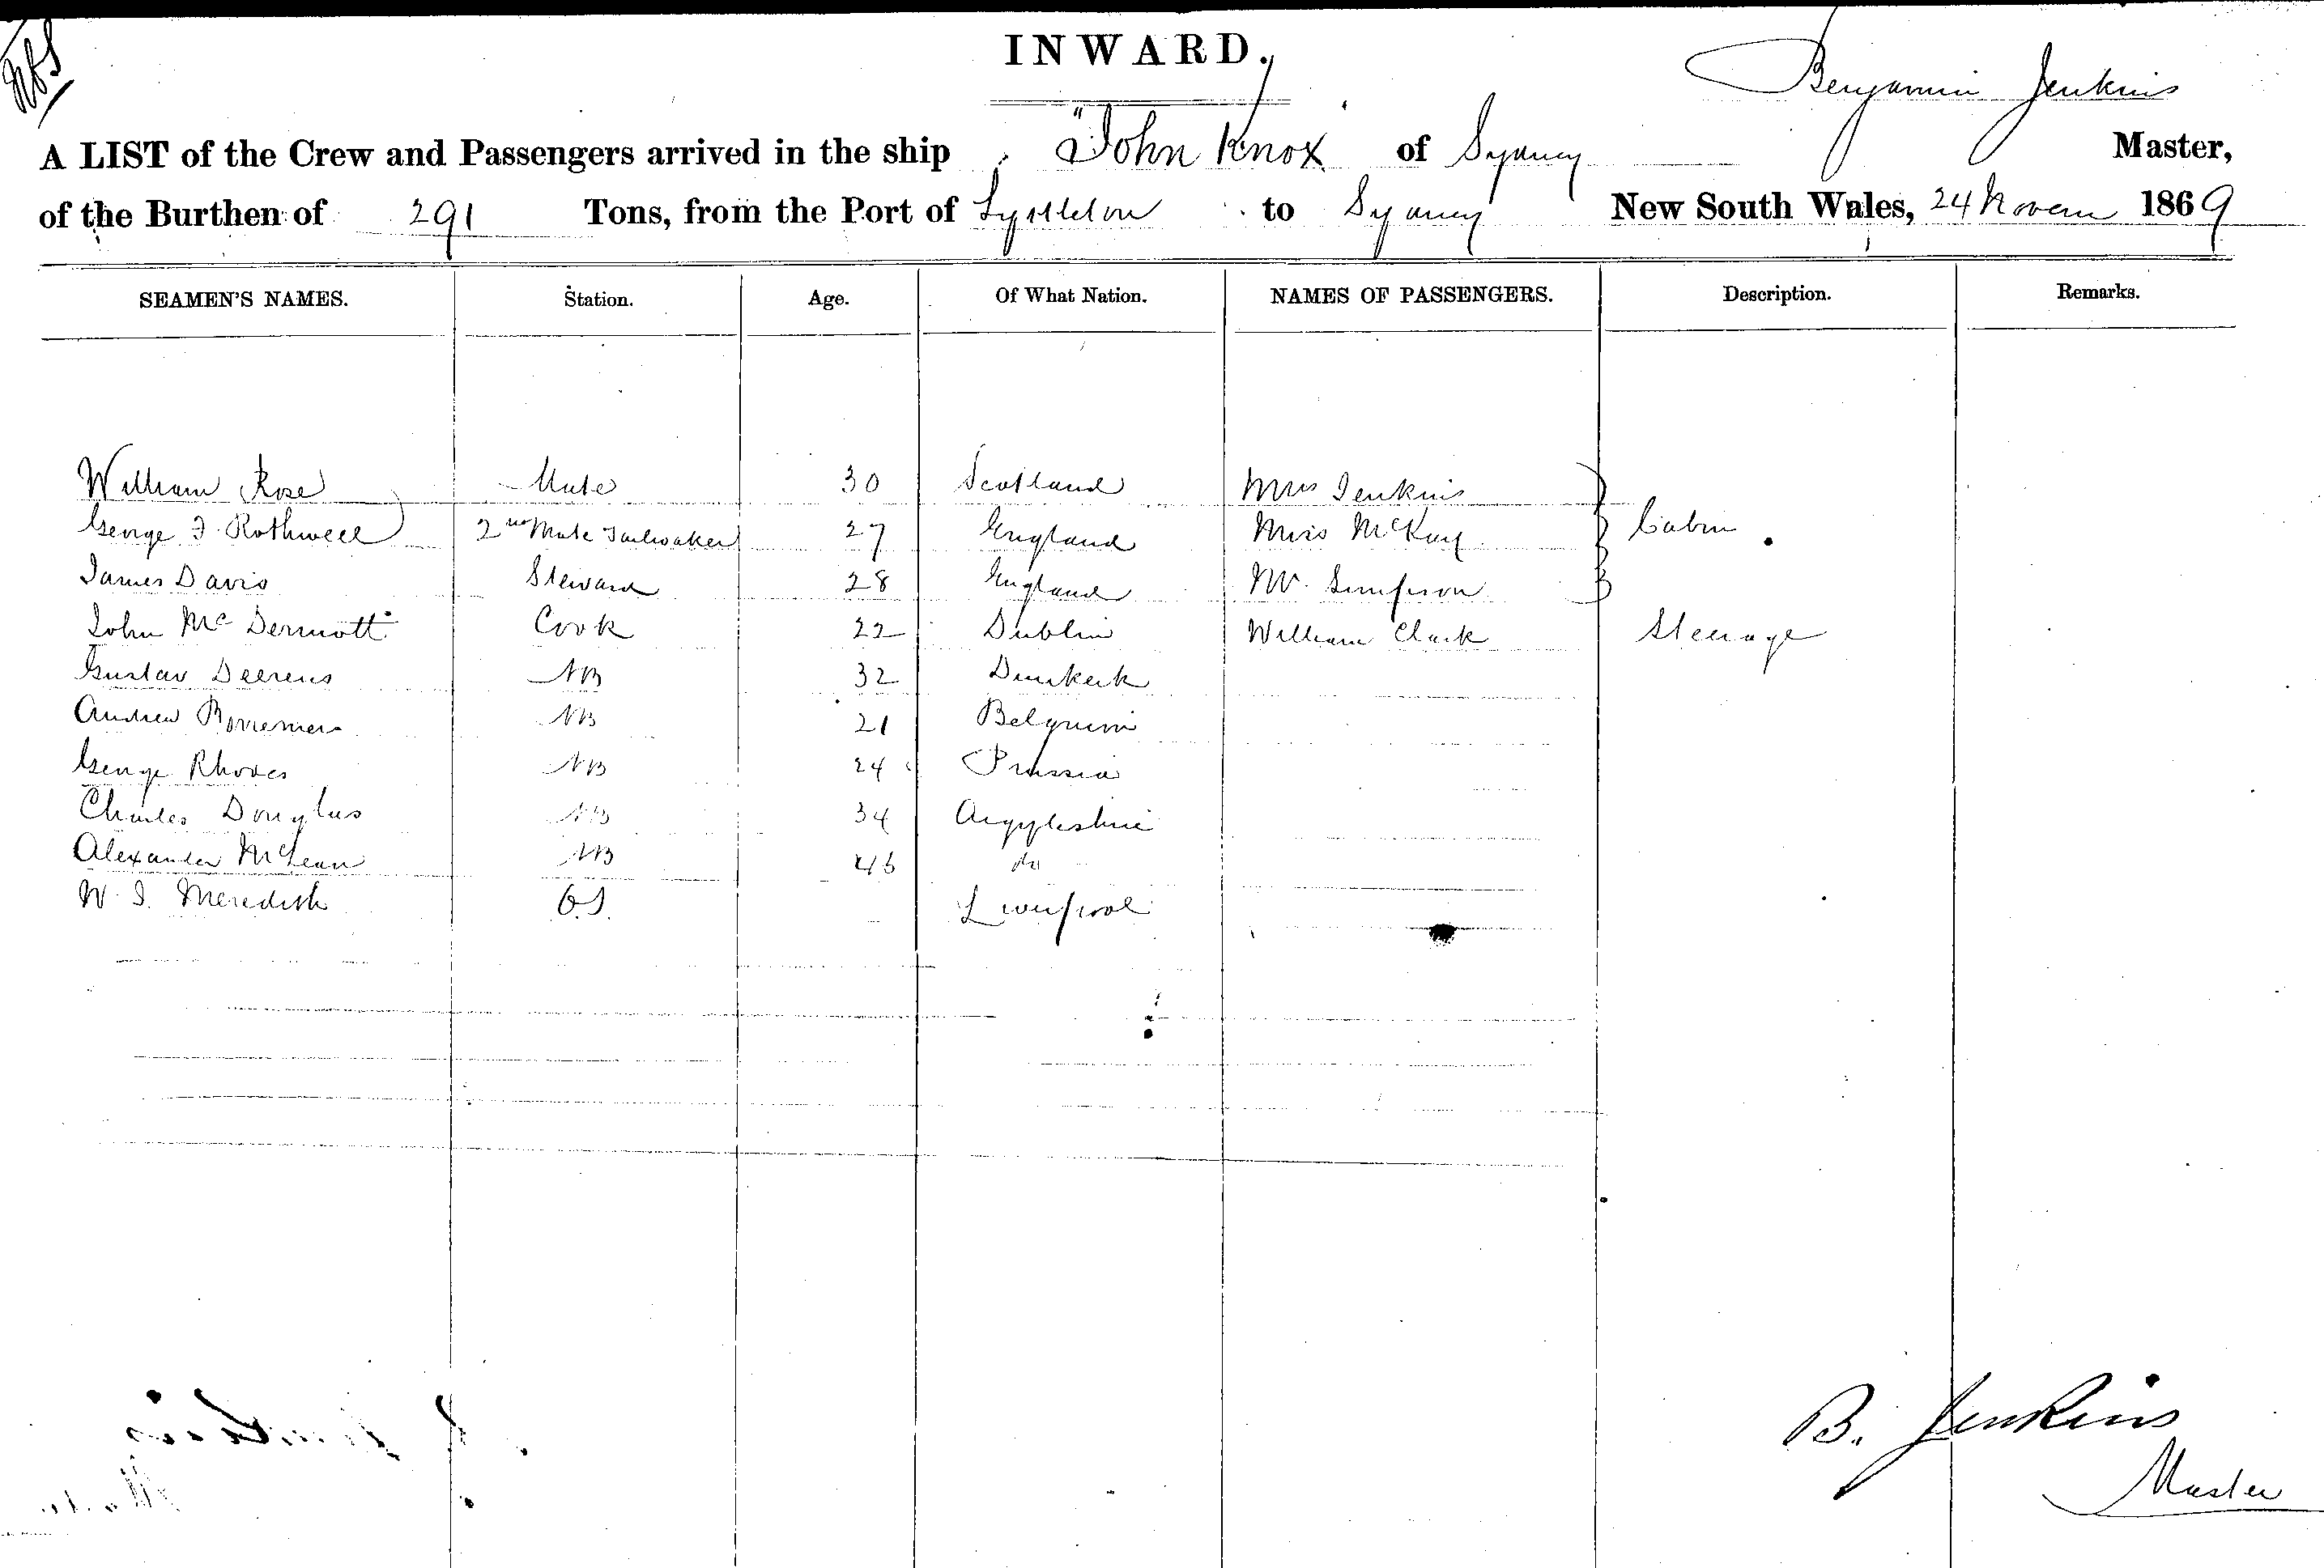 INWARD.
Benjamin Jenkins
A LIST of the Crew and Passengers arrived in the ship "John Knox" of Sydney Master,
of the Burthen of 291 Tons, from the Port of Lyttleton to Sydney New South Wales, 24 Novem 1869
SEAMEN'S NAMES. Station. Age. Of What Nation. NAMES OF PASSENGERS. Description. Remarks.
William Rose Mate 30 Scotland Mrs Jenkins
George F. Rothwell 2nd Mate Sailmaker 27 England Miss McKay Cabin
James Davis Steward 28 England Mr. Simpson
John McDermott Cook 22 Dublin William Clark Steerage
Gustav Deereus AB 32 Dunkerk
Andrew AB 21 Belgium
George Rhodes AB 24 Prussia
Charles Douglas AB 34 Argyleshire
Alexander McLean AB 45 do
W. I. Meredith OS. Liverpool
B. Jenkins
Master